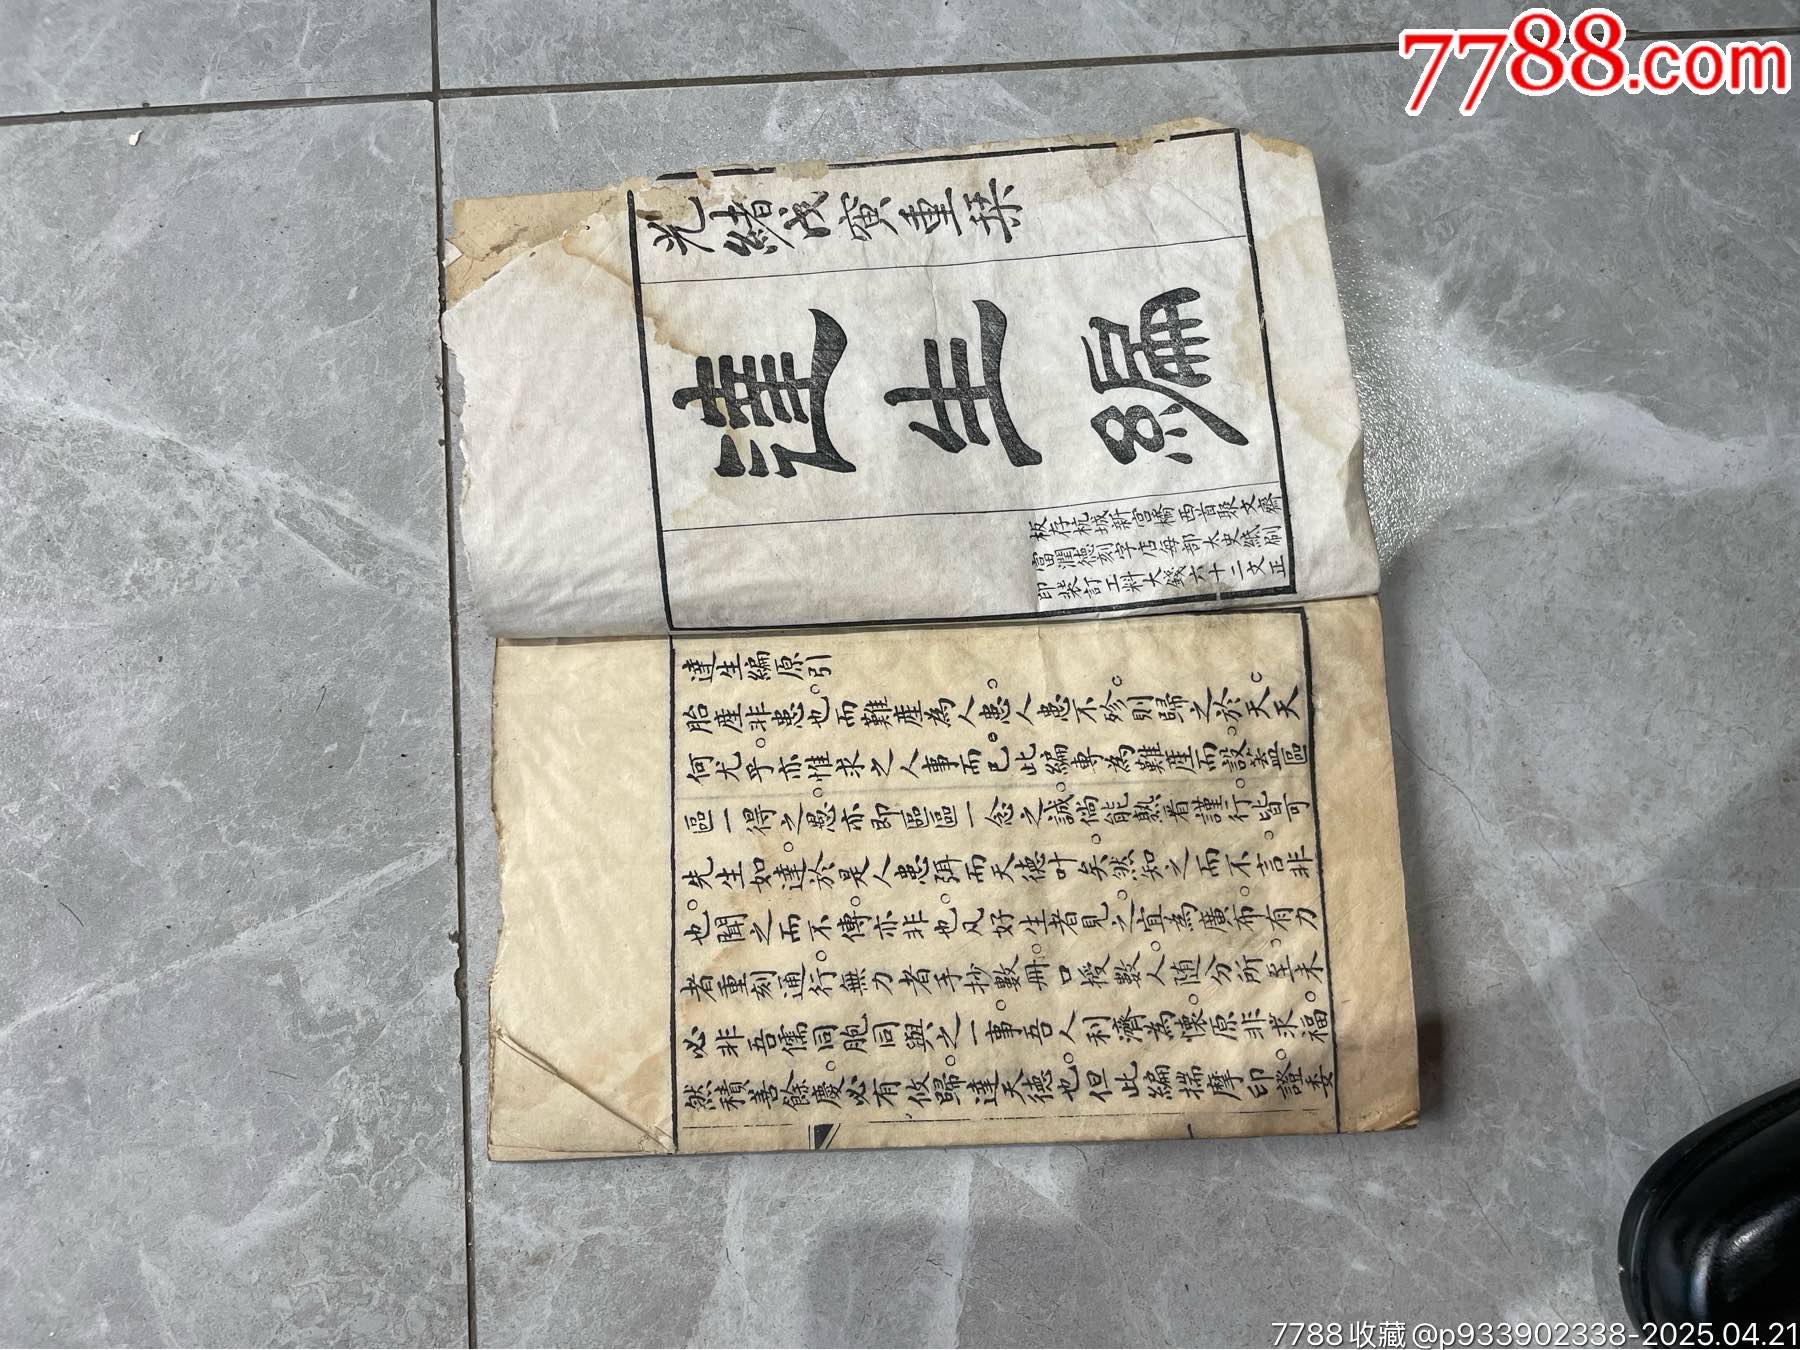 7788.com
光緒戊寅重栞
達生編
板存杭城新宮橋西首聚文齋
富潤德刻字店每部太史紙刷
印裝訂工料大錢六十二文正
達生編原引
胎產非患也而難產為人患人患不殄則歸之於天天
何尤乎亦惟求之人事而已此編專為難產而設蓋區
區一得之愚亦即區區一念之誠倘能熟看謹行皆可
先生如達於是人患弭而天德叶矣然知之而不言非
也聞之而不傳亦非也凡好生者見之宜為廣布有力
者重刻通行無力者手抄數冊口授數人随分所至未
必非吾儒同胞同與之一事吾人利濟為懷原非求福
然積善餘慶必有攸歸達天德也但此編揣摩印證委
一
7788收藏@p933902338-2025.04.21